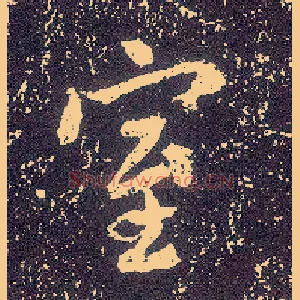 室
Shufawang.CN